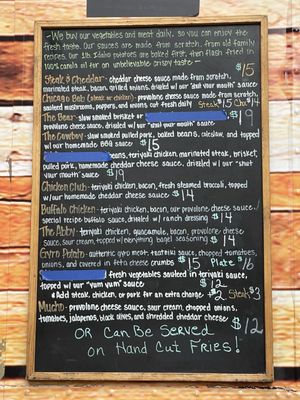 -We buy our vegetables and meat daily, so you can enjoy the
fresh taste. Our sauces are made from scratch, from old family
recipes. Our 1lb. Idaho potatoes are baked first, then flash fried in
100% canola oil for an unbelievable crispy taste-
Steak & Cheddar- cheddar cheese sauce made from scratch, $15
marinated steak, bacon, grilled onions, drizzled w/ our "shut your mouth" sauce
Chicago Bob (steak or chicken)- provolone cheese sauce made from scratch,
sauteed mushrooms, peppers, and onions cut fresh daily Steak $15 Chx $14
The Bear- slow smoked brisket or $19
provolone cheese sauce, drizzled w/ our "shut your mouth" sauce
The Cowboy- slow smoked pulled pork, baked beans, coleslaw, and topped
w/ our homemade BBQ sauce $15
beans, teriyaki chicken, marinated steak, brisket,
pulled pork, homemade cheddar cheese sauce, drizzled w/ our "shut
your mouth" sauce $19
Chicken Club- teriyaki chicken, bacon, fresh steamed broccoli, topped
w/our homemade cheddar cheese sauce $14
Buffalo Chicken- teriyaki chicken, bacon, our provolone cheese sauce,
special recipe buffalo sauce, drizzled w/ ranch dressing $14
The Abby- teriyaki chicken, guacamole, bacon, provolone cheese
sauce, sour cream, topped w/everything bagel seasoning $14
Gyro Potato- authentic gyro meat, tzatziki sauce, chopped tomatoes,
onions, and covered in feta cheese crumbs $15 Plate $16
fresh vegetables sauteed in teriyaki sauce,
topped w/ our "yum yum" sauce $12
*Add steak, chicken, or pork for an extra charge +$2 Steak $3
Mucho- provolone cheese sauce, sour cream, chopped onions,
tomatoes, jalapenos, black olives, and shredded cheddar cheese $12
OR Can Be Served
on Hand Cut Fries!